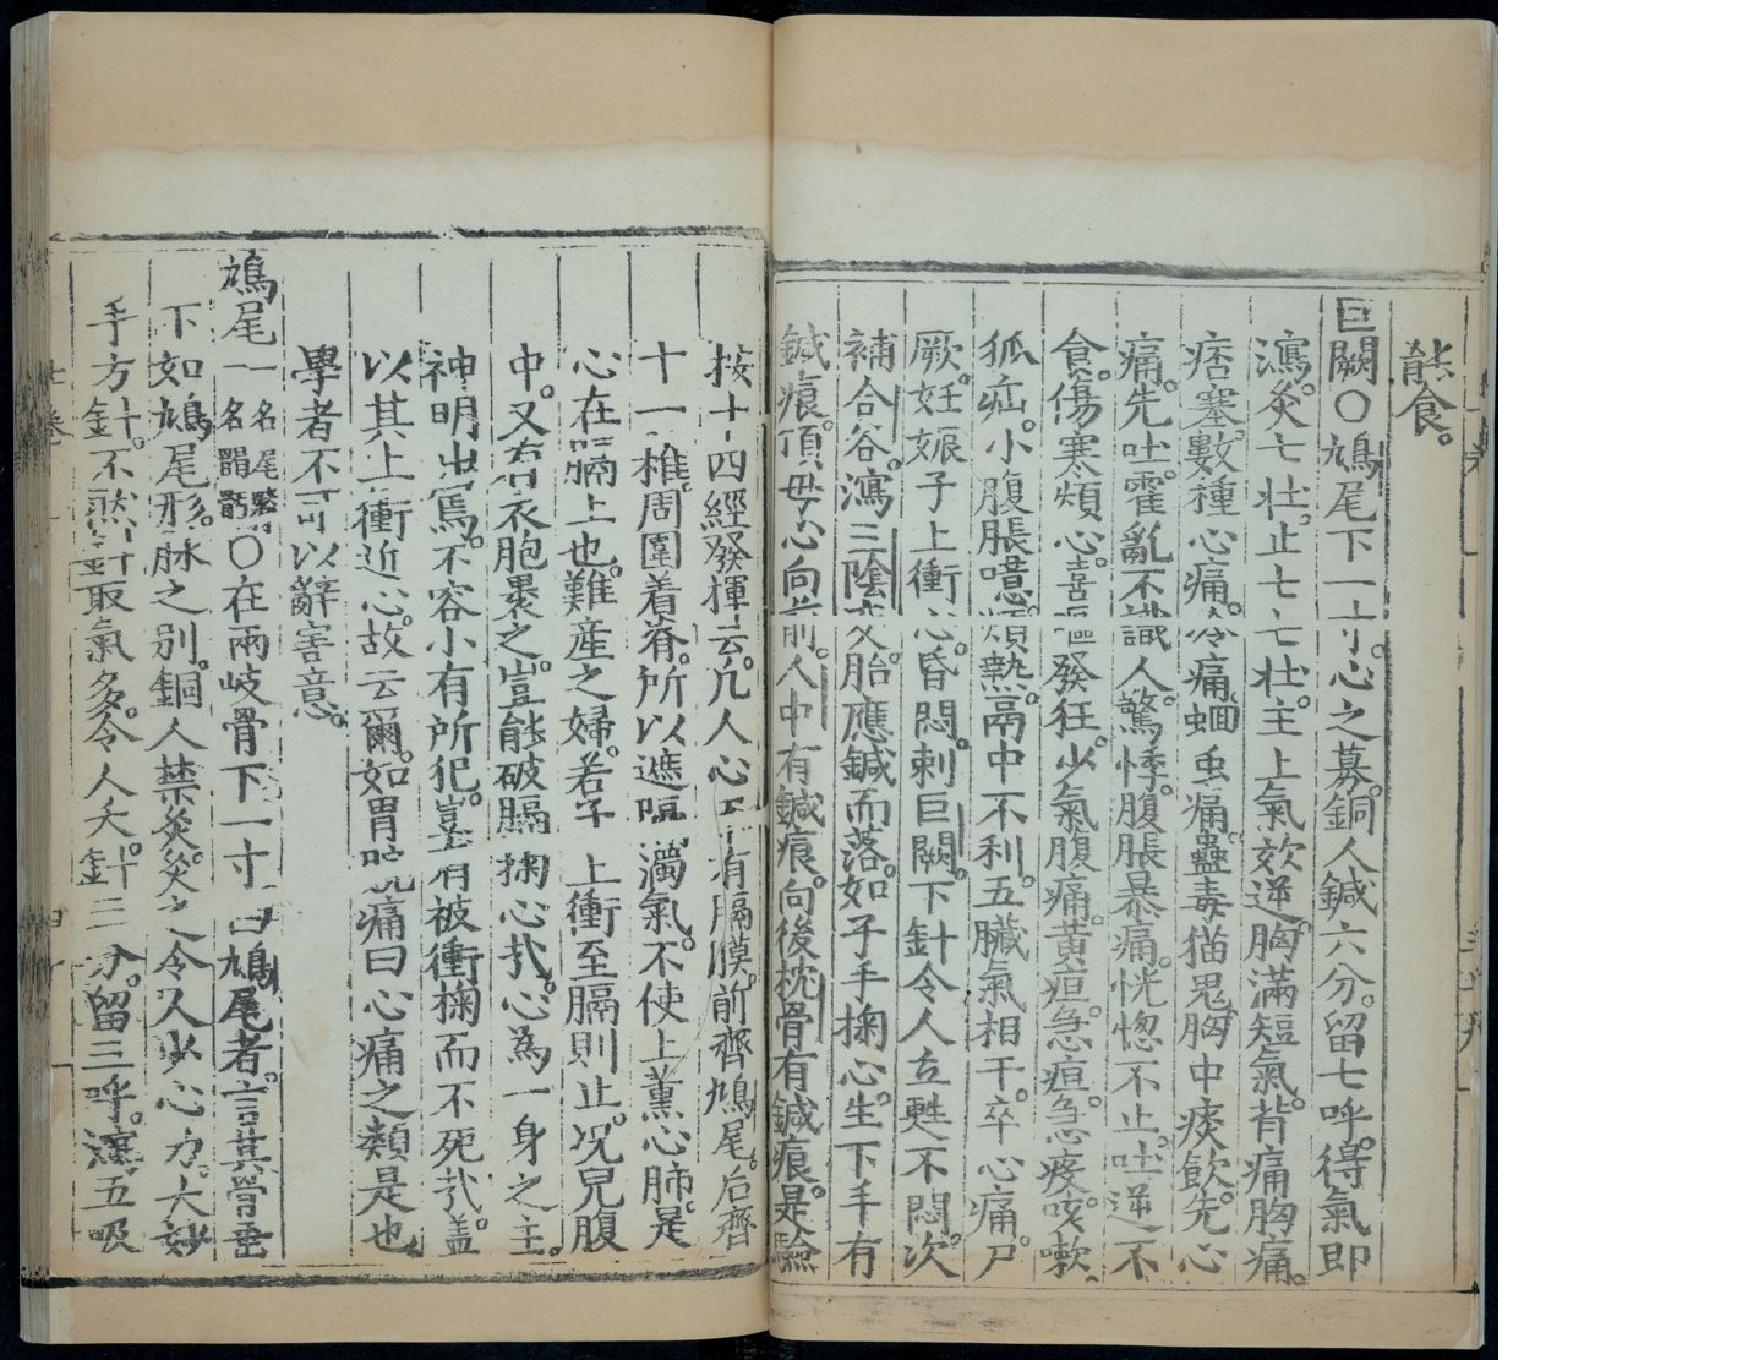 能食。
巨闕○鳩尾下一寸。心之募。銅人鍼六分。留七呼。得氣即
瀉。灸七壯。止七七壯。主上氣欬逆。胸滿短氣。背痛胸痛。
痞塞。數種心痛。冷痛。蛔虫痛。蠱毒猫鬼。胸中痰飲。先心
痛。先吐。霍亂不識人。驚悸。腹脹暴痛。恍惚不止。吐逆不
食。傷寒煩心。喜嘔發狂。少氣腹痛。黃疸。急疸。急疫。咳嗽。
狐疝。小腹脹噫。煩熱。鬲中不利。五臟氣相干。卒心痛。尸
厥。妊娠子上衝心。昏悶。刺巨闕。下針令人立甦不悶。次
補合谷。瀉三陰交。胎應鍼而落。如子手掬心。生下手有
鍼痕。頂母心向前。人中有鍼痕。向後枕骨有鍼痕。是驗
按十四經發揮云。凡人心下有膈膜。前齊鳩尾。后齊
十一椎。周圍着脊。所以遮隔濁氣。不使上薰心肺。是
心在膈上也。難產之婦。若子上衝至膈則止。况兒腹
中。又有衣胞褁之。豈能破膈掬心㢤。心為一身之主。
神明出焉。不容小有所犯。豈有被衝掬而不死㢤。盖
以其上衝近心。故云爾。如胃脘痛曰心痛之類是也
學者不可以辭害意。
鳩尾一名尾翳。一名𩩲骬。○在兩岐骨下一寸。曰鳩尾者。言其骨垂
下如鳩尾形。脉之别。銅人禁灸。灸之令人少心力。大妙
手方針。不然針取氣多。令人夭。針三分。留三呼。瀉五吸